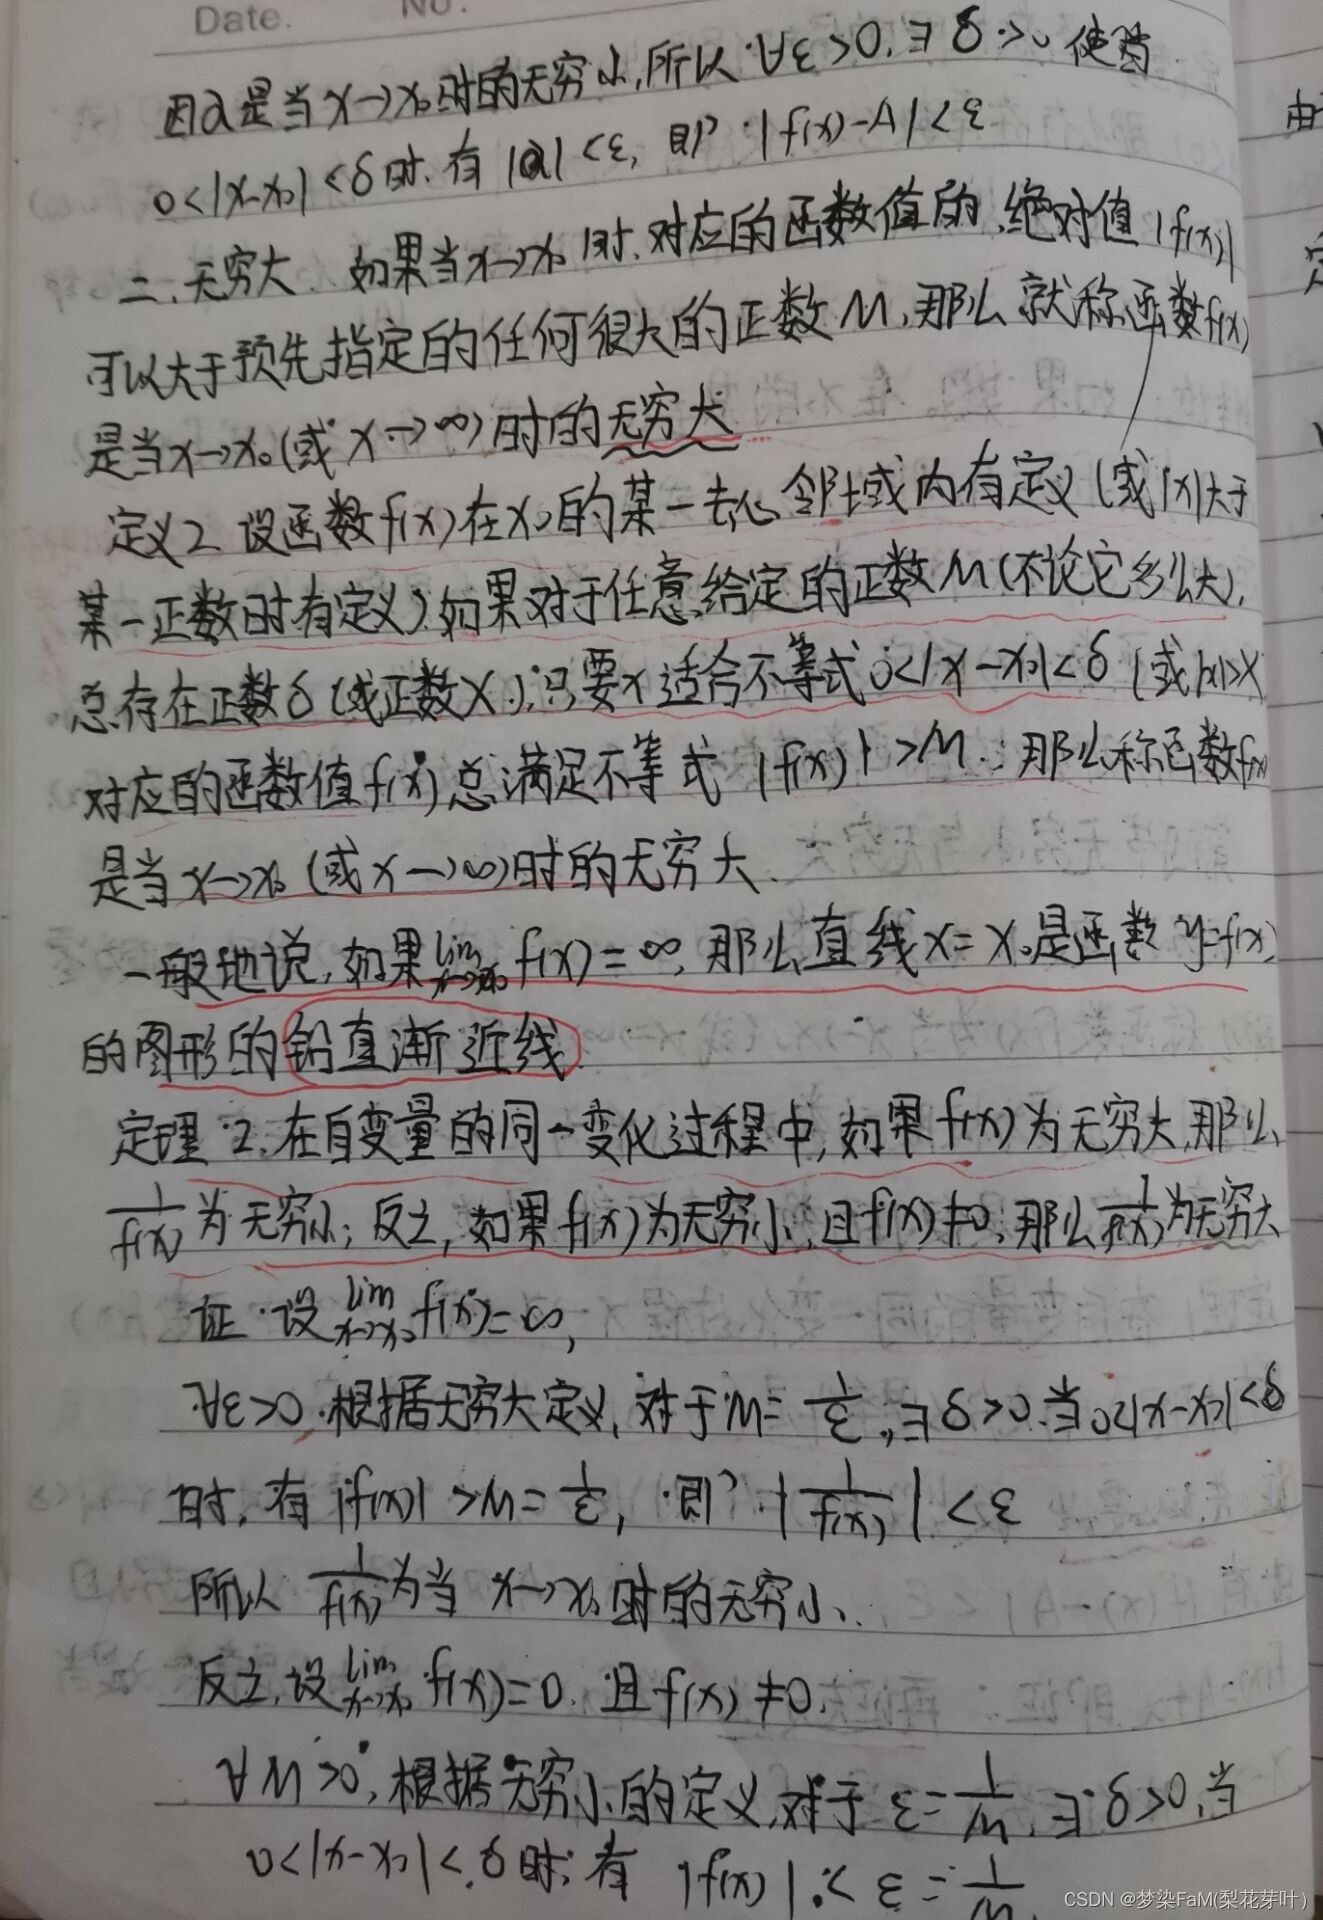 Date.
No.
因α是当x→x₀时的无穷小,所以∀ε>0,∃δ>0使当
0<|x-x₀|<δ时,有|α|<ε,即|f(x)-A|<ε
二、无穷大.如果当x→x₀时,对应的函数值的绝对值|f(x)|
可以大于预先指定的任何很大的正数M,那么就称函数f(x)
是当x→x₀(或x→∞)时的无穷大
定义2 设函数f(x)在x₀的某一去心邻域内有定义(或|x|大于
某一正数时有定义).如果对于任意给定的正数M(不论它多么大),
总存在正数δ(或正数X),只要x适合不等式0<|x-x₀|<δ(或|x|>X
对应的函数值f(x)总满足不等式|f(x)|>M.那么称函数f(x)
是当x→x₀(或x→∞)时的无穷大.
一般地说,如果lim x→x₀ f(x)=∞,那么直线x=x₀是函数y=f(x)
的图形的铅直渐近线.
定理2.在自变量的同一变化过程中,如果f(x)为无穷大,那么
1/f(x)为无穷小;反之,如果f(x)为无穷小,且f(x)≠0,那么1/f(x)为无穷大
证 设lim x→x₀ f(x)=∞,
∀ε>0.根据无穷大定义,对于M=1/ε,∃δ>0.当0<|x-x₀|<δ
时,有|f(x)|>M=1/ε,即|1/f(x)|<ε
所以1/f(x)为当x→x₀时的无穷小.
反之,设lim x→x₀ f(x)=0.且f(x)≠0.
∀M>0,根据无穷小的定义,对于ε=1/M,∃δ>0,当
0<|x-x₀|<δ时,有|f(x)|<ε=1/M
由
CSDN @梦染FaM(梨花芽叶)